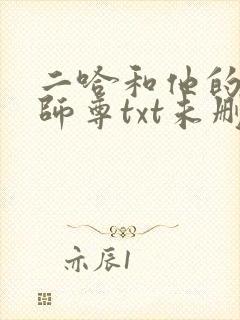 二哈和他的
師尊txt未删
亦辰1